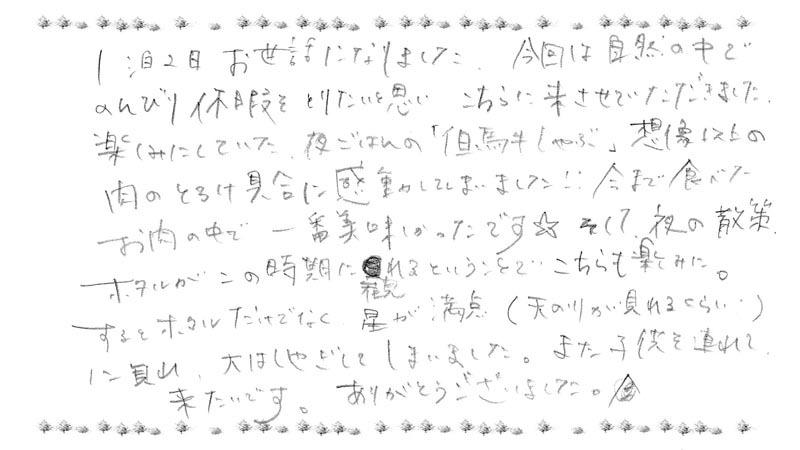 1泊2日お世話になりました。今回は自然の中で
のんびり休暇をとりたいと思い こちらに来させていただきました。
楽しみにしていた、夜ごはんの「但馬牛しゃぶ」想像以上の
肉のとろけ具合に感動してしまいました!!今まで食べた
お肉の中で一番美味しかったです☆ そして、夜の散策。
ホタルがこの時期に観れるということでこちらも楽しみに。
するとホタルだけでなく、星が満点(天の川が見れるくらい…)
に見れ、大はしゃぎしてしまいました。また子供を連れて
来たいです。ありがとうございました。